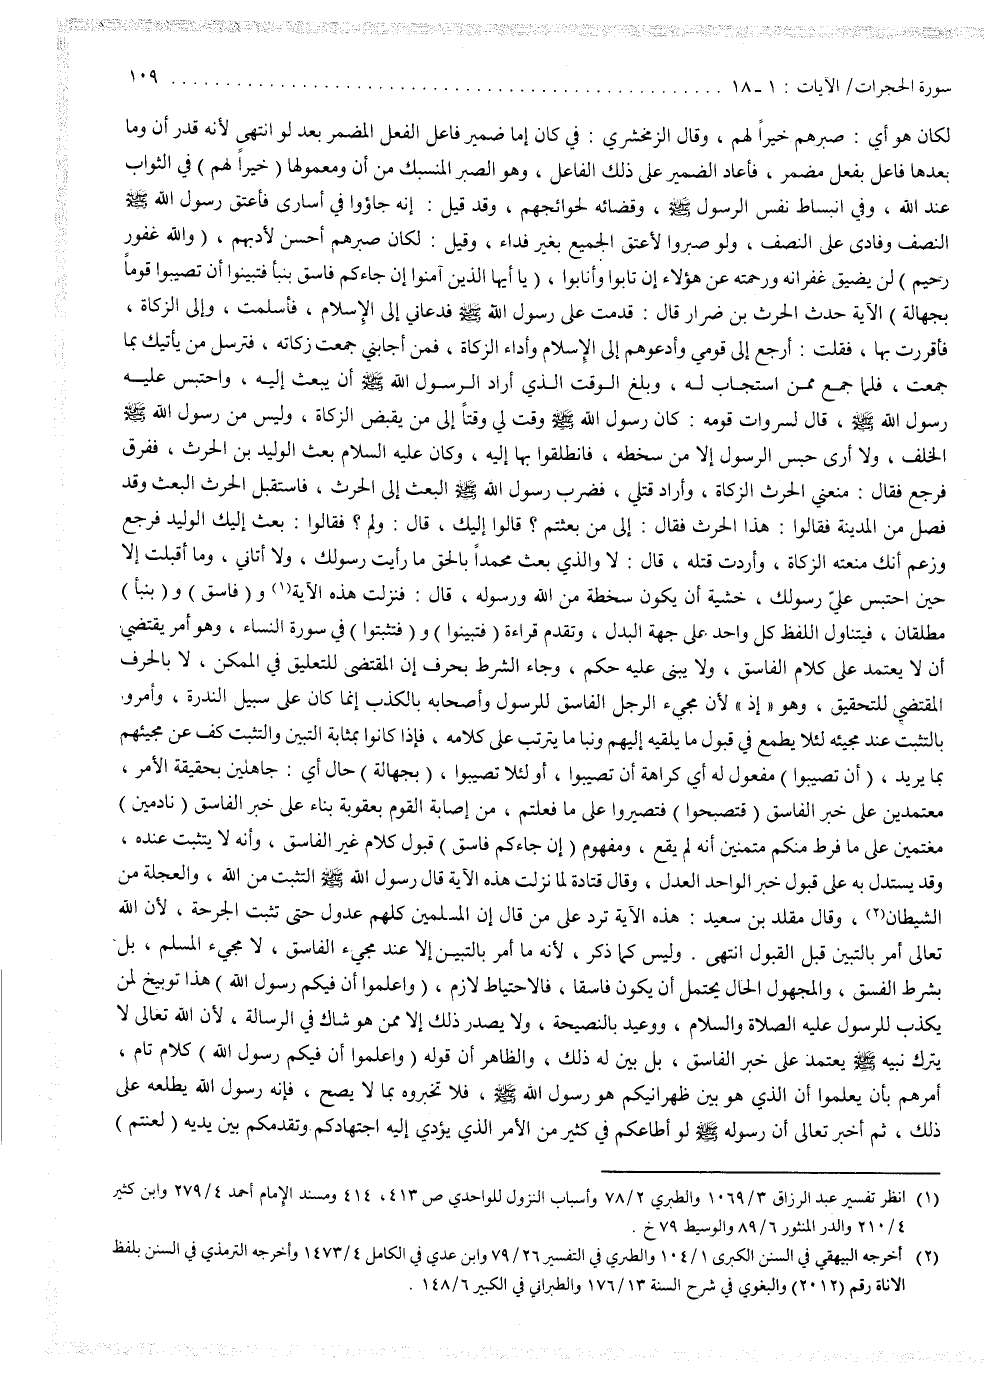 سورة الحجرات/ الآيات : ١ ـ ١٨ . . . . . . . . . . . . . . . . . . . . . . . . . . . . . . . . . . . . . . . . ١٠٩
لكان هو أي : صبرهم خيراً لهم ، وقال الزمخشري : في كان إما ضمير فاعل الفعل المضمر بعد لو انتهى لأنه قدر أن وما
بعدها فاعل بفعل مضمر ، فأعاد الضمير على ذلك الفاعل ، وهو الصبر المنسبك من أن ومعمولها ( خيراً لهم ) في الثواب
عند الله ، وفي انبساط نفس الرسول ﷺ ، وقضائه لحوائجهم ، وقد قيل : إنه جاؤوا في أسارى فأعتق رسول الله ﷺ
النصف وفادى على النصف ، ولو صبروا لأعتق الجميع بغير فداء ، وقيل : لكان صبرهم أحسن لأدبهم ، ( والله غفور
رحيم ) لن يضيق غفرانه ورحمته عن هؤلاء إن تابوا وأنابوا ، ( يا أيها الذين آمنوا إن جاءكم فاسق بنبأ فتبينوا أن تصيبوا قوماً
بجهالة ) الآية حدث الحرث بن ضرار قال : قدمت على رسول الله ﷺ فدعاني إلى الإسلام ، فأسلمت ، وإلى الزكاة ،
فأقررت بها ، فقلت : أرجع إلى قومي وأدعوهم إلى الإسلام وأداء الزكاة ، فمن أجابني جمعت زكاته ، فترسل من يأتيك بما
جمعت ، فلما جمع ممن استجاب له ، وبلغ الوقت الذي أراد الرسول الله ﷺ أن يبعث إليه ، واحتبس عليه
رسول الله ﷺ ، قال لسروات قومه : كان رسول الله ﷺ وقت لي وقتاً إلى من يقبض الزكاة ، وليس من رسول الله ﷺ
الخلف ، ولا أرى حبس الرسول إلا من سخطه ، فانطلقوا بها إليه ، وكان عليه السلام بعث الوليد بن الحرث ، ففرق
فرجع فقال : منعني الحرث الزكاة ، وأراد قتلي ، فضرب رسول الله ﷺ البعث إلى الحرث ، فاستقبل الحرث البعث وقد
فصل من المدينة فقالوا : هذا الحرث فقال : إلى من بعثتم ؟ قالوا إليك ، قال : ولم ؟ فقالوا : بعث إليك الوليد فرجع
وزعم أنك منعته الزكاة ، وأردت قتله ، قال : لا والذي بعث محمداً بالحق ما رأيت رسولك ، ولا أتاني ، وما أقبلت إلا
حين احتبس عليّ رسولك ، خشية أن يكون سخطة من الله ورسوله ، قال : فنزلت هذه الآية(١) و ( فاسق ) و ( بنبأ )
مطلقان ، فيتناول اللفظ كل واحد على جهة البدل ، وتقدم قراءة ( فتبينوا ) و ( فتثبتوا ) في سورة النساء ، وهو أمر يقتضي
أن لا يعتمد على كلام الفاسق ، ولا يبنى عليه حكم ، وجاء الشرط بحرف إن المقتضي للتعليق في الممكن ، لا بالحرف
المقتضي للتحقيق ، وهو « إذ » لأن مجيء الرجل الفاسق للرسول وأصحابه بالكذب إنما كان على سبيل الندرة ، وأمرو
بالتثبت عند مجيئه لئلا يطمع في قبول ما يلقيه إليهم ونبا ما يترتب على كلامه ، فإذا كانوا بمثابة التبين والتثبت كف عن مجيئهم
بما يريد ، ( أن تصيبوا ) مفعول له أي كراهة أن تصيبوا ، أو لئلا تصيبوا ، ( بجهالة ) حال أي : جاهلين بحقيقة الأمر ،
معتمدين على خبر الفاسق ( فتصبحوا ) فتصيروا على ما فعلتم ، من إصابة القوم بعقوبة بناء على خبر الفاسق ( نادمين )
مغتمين على ما فرط منكم متمنين أنه لم يقع ، ومفهوم ( إن جاءكم فاسق ) قبول كلام غير الفاسق ، وأنه لا يتثبت عنده ،
وقد يستدل به على قبول خبر الواحد العدل ، وقال قتادة لما نزلت هذه الآية قال رسول الله ﷺ التثبت من الله ، والعجلة من
الشيطان(٢) ، وقال مقلد بن سعيد : هذه الآية ترد على من قال إن المسلمين كلهم عدول حتى تثبت الجرحة ، لأن الله
تعالى أمر بالتبين قبل القبول انتهى . وليس كما ذكر ، لأنه ما أمر بالتبين إلا عند مجيء الفاسق ، لا مجيء المسلم ، بل
بشرط الفسق ، والمجهول الحال يحتمل أن يكون فاسقا ، فالاحتياط لازم ، ( واعلموا أن فيكم رسول الله ) هذا توبيخ لمن
يكذب للرسول عليه الصلاة والسلام ، ووعيد بالنصيحة ، ولا يصدر ذلك إلا ممن هو شاك في الرسالة ، لأن الله تعالى لا
يترك نبيه ﷺ يعتمد على خبر الفاسق ، بل بين له ذلك ، والظاهر أن قوله ( واعلموا أن فيكم رسول الله ) كلام تام ،
أمرهم بأن يعلموا أن الذي هو بين ظهرانيكم هو رسول الله ﷺ ، فلا تخبروه بما لا يصح ، فإنه رسول الله يطلعه على
ذلك ، ثم أخبر تعالى أن رسوله ﷺ لو أطاعكم في كثير من الأمر الذي يؤدي إليه اجتهادكم وتقدمكم بين يديه ( لعنتم )
(١) انظر تفسير عبد الرزاق ١٠٦٩/٣ والطبري ٧٨/٢ وأسباب النزول للواحدي ص ٤١٣، ٤١٤ ومسند الإمام أحمد ٢٧٩/٤ وابن كثير
٢١٠/٤ والدر المنثور ٨٩/٦ والوسيط ٧٩ خ .
(٢) أخرجه البيهقي في السنن الكبرى ١٠٤/١ والطبري في التفسير ٧٩/٢٦ وابن عدي في الكامل ١٤٧٣/٤ وأخرجه الترمذي في السنن بلفظ
الاناة رقم (٢٠١٢) والبغوي في شرح السنة ١٧٦/١٣ والطبراني في الكبير ١٤٨/٦ .